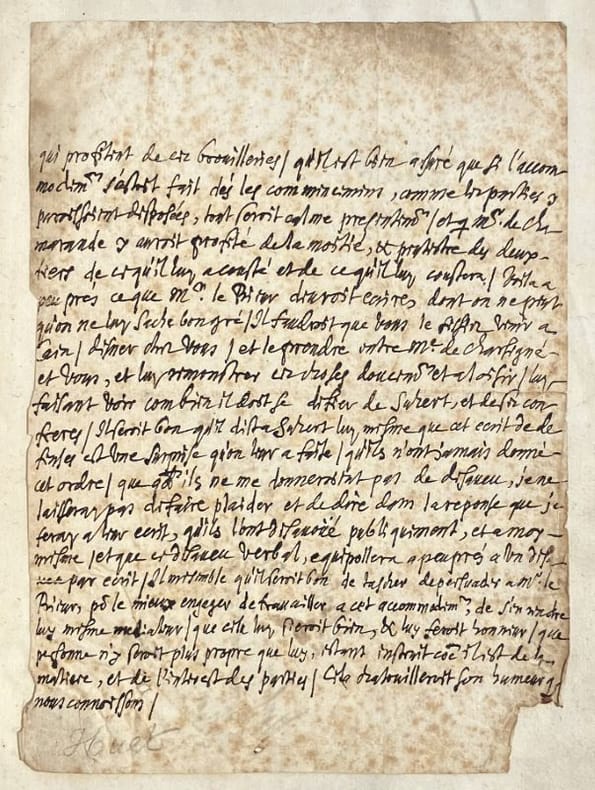 qui profitent de ces brouilleries / qu'il est bien assuré que si l'accom-
modem.t s'estoit fait dés les commencemens, comme les parties y
paroissoient disposées, tout seroit calme presentem.t / et q Mr. de Cha-
marande y auroit profité de la moitié, & peutestre des deux
tiers de ce qu'il luy a cousté et de ce qu'il luy coustera / Voila a
peu pres ce que Mr. le Prieur devroit écrire, dont on ne peut
qu'on ne luy sache bon gré / Il faudroit que vous le fissiez venir a
Caen / disner chez vous / et le prendre entre Mr. de Chartigné
et vous, et luy remonstrer ces choses doucem.t et a loisir / luy
faisant voir combien il doit se défier de Sahert, et de ses con-
freres / Il seroit bon qu'il dist a Sahert luy mesme que cet écrit de dé-
fenses est une surprise qu'on leur a faite / qu'ils n'ont jamais donné
cet ordre / que qd ils ne me donneroient pas de desaveu, je ne
laisseray pas de faire plaider et de dire dans la reponse que je
feray a leur ecrit, qu'ils l'ont desavoüé publiquement, et a moy-
mesme / et que ce desaveu verbal, equipollera a peu pres a un desa-
par écrit / Il me semble qu'il seroit bon de tascher de persuader a Mr. le
Prieur, po le mieux engager de travailler a cet accommodem.t, de s'en rendre
luy mesme mediateur / que cela luy sieroit bien, & luy feroit honneur / que
personne n'y seroit plus propre que luy, estant instruit cõe il est de la
matiere, et de l'interest des parties / Cela chatouilleroit son humeur q
nous connoissons /
Huet